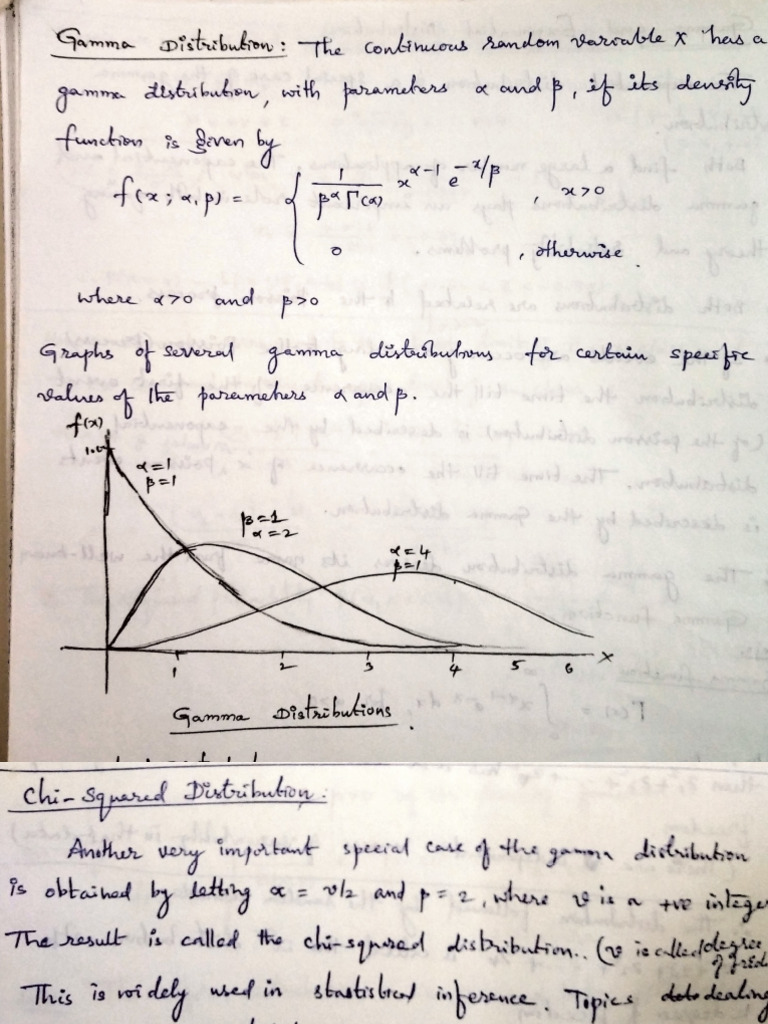 Gamma Distribution: The continuous random variable X has a
gamma distribution, with parameters α and β, if its density
function is given by
f(x; α, β) = { 1/(β^α Γ(α)) x^(α-1) e^(-x/β) , x>0
0 , otherwise.
where α>0 and β>0
Graphs of several gamma distributions for certain specific
values of the parameters α and β.
f(x)
1.0
α=1
β=1
β=1
α=2
α=4
β=1
1 2 3 4 5 6 x
Gamma Distributions.
Chi-Squared Distribution:
Another very important special case of the gamma distribution
is obtained by letting α = v/2 and β = 2, where v is a +ve integer
The result is called the chi-squared distribution.. (v is called degree
of
This is widely used in stastistical inference. Topics dealing